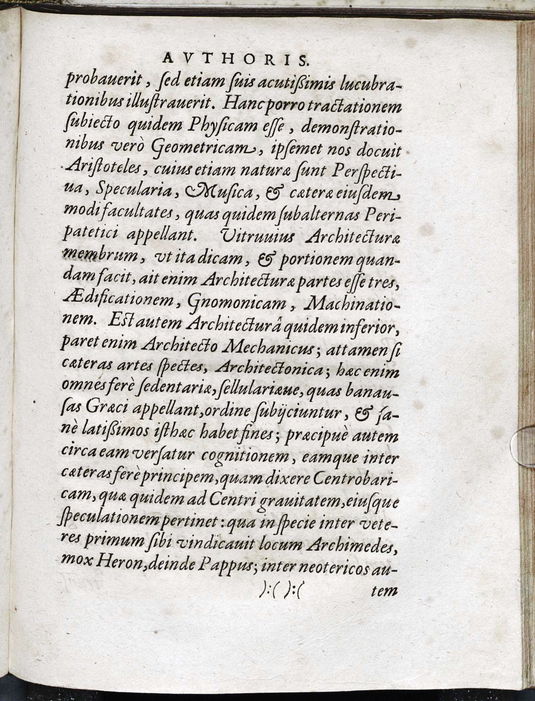 AVTHORIS.
probauerit, sed etiam suis acutißimis lucubra-
tionibus illustrauerit. Hanc porro tractationem
subiecto quidem Physicam esse, demonstratio-
nibus verò Geometricam, ipsemet nos docuit
Aristoteles, cuius etiam naturæ sunt Perspecti-
ua, Specularia, Musica, & cæteræ eiusdem
modi facultates, quas quidem subalternas Peri-
patetici appellant. Vitruuius Architecturæ
membrum, vt ita dicam, & portionem quan-
dam facit, ait enim Architecturæ partes esse tres,
Ædificationem, Gnomonicam, Machinatio-
nem. Est autem Architecturâ quidem inferior,
paret enim Architecto Mechanicus; attamen si
cæteras artes spectes, Architectonica; hæc enim
omnes ferè sedentariæ, sellulariæue, quas banau-
sas Græci appellant, ordine subijciuntur, & sa-
nè latißimos isthæc habet fines; præcipuè autem
circa eam versatur cognitionem, eamque inter
cæteras ferè principem, quam dixere Centrobari-
cam, quæ quidem ad Centri grauitatem, eiusque
speculationem pertinet: qua in specie inter vete-
res primum sibi vindicauit locum Archimedes,
mox Heron, deinde Pappus; inter neotericos au-
):( ):( tem